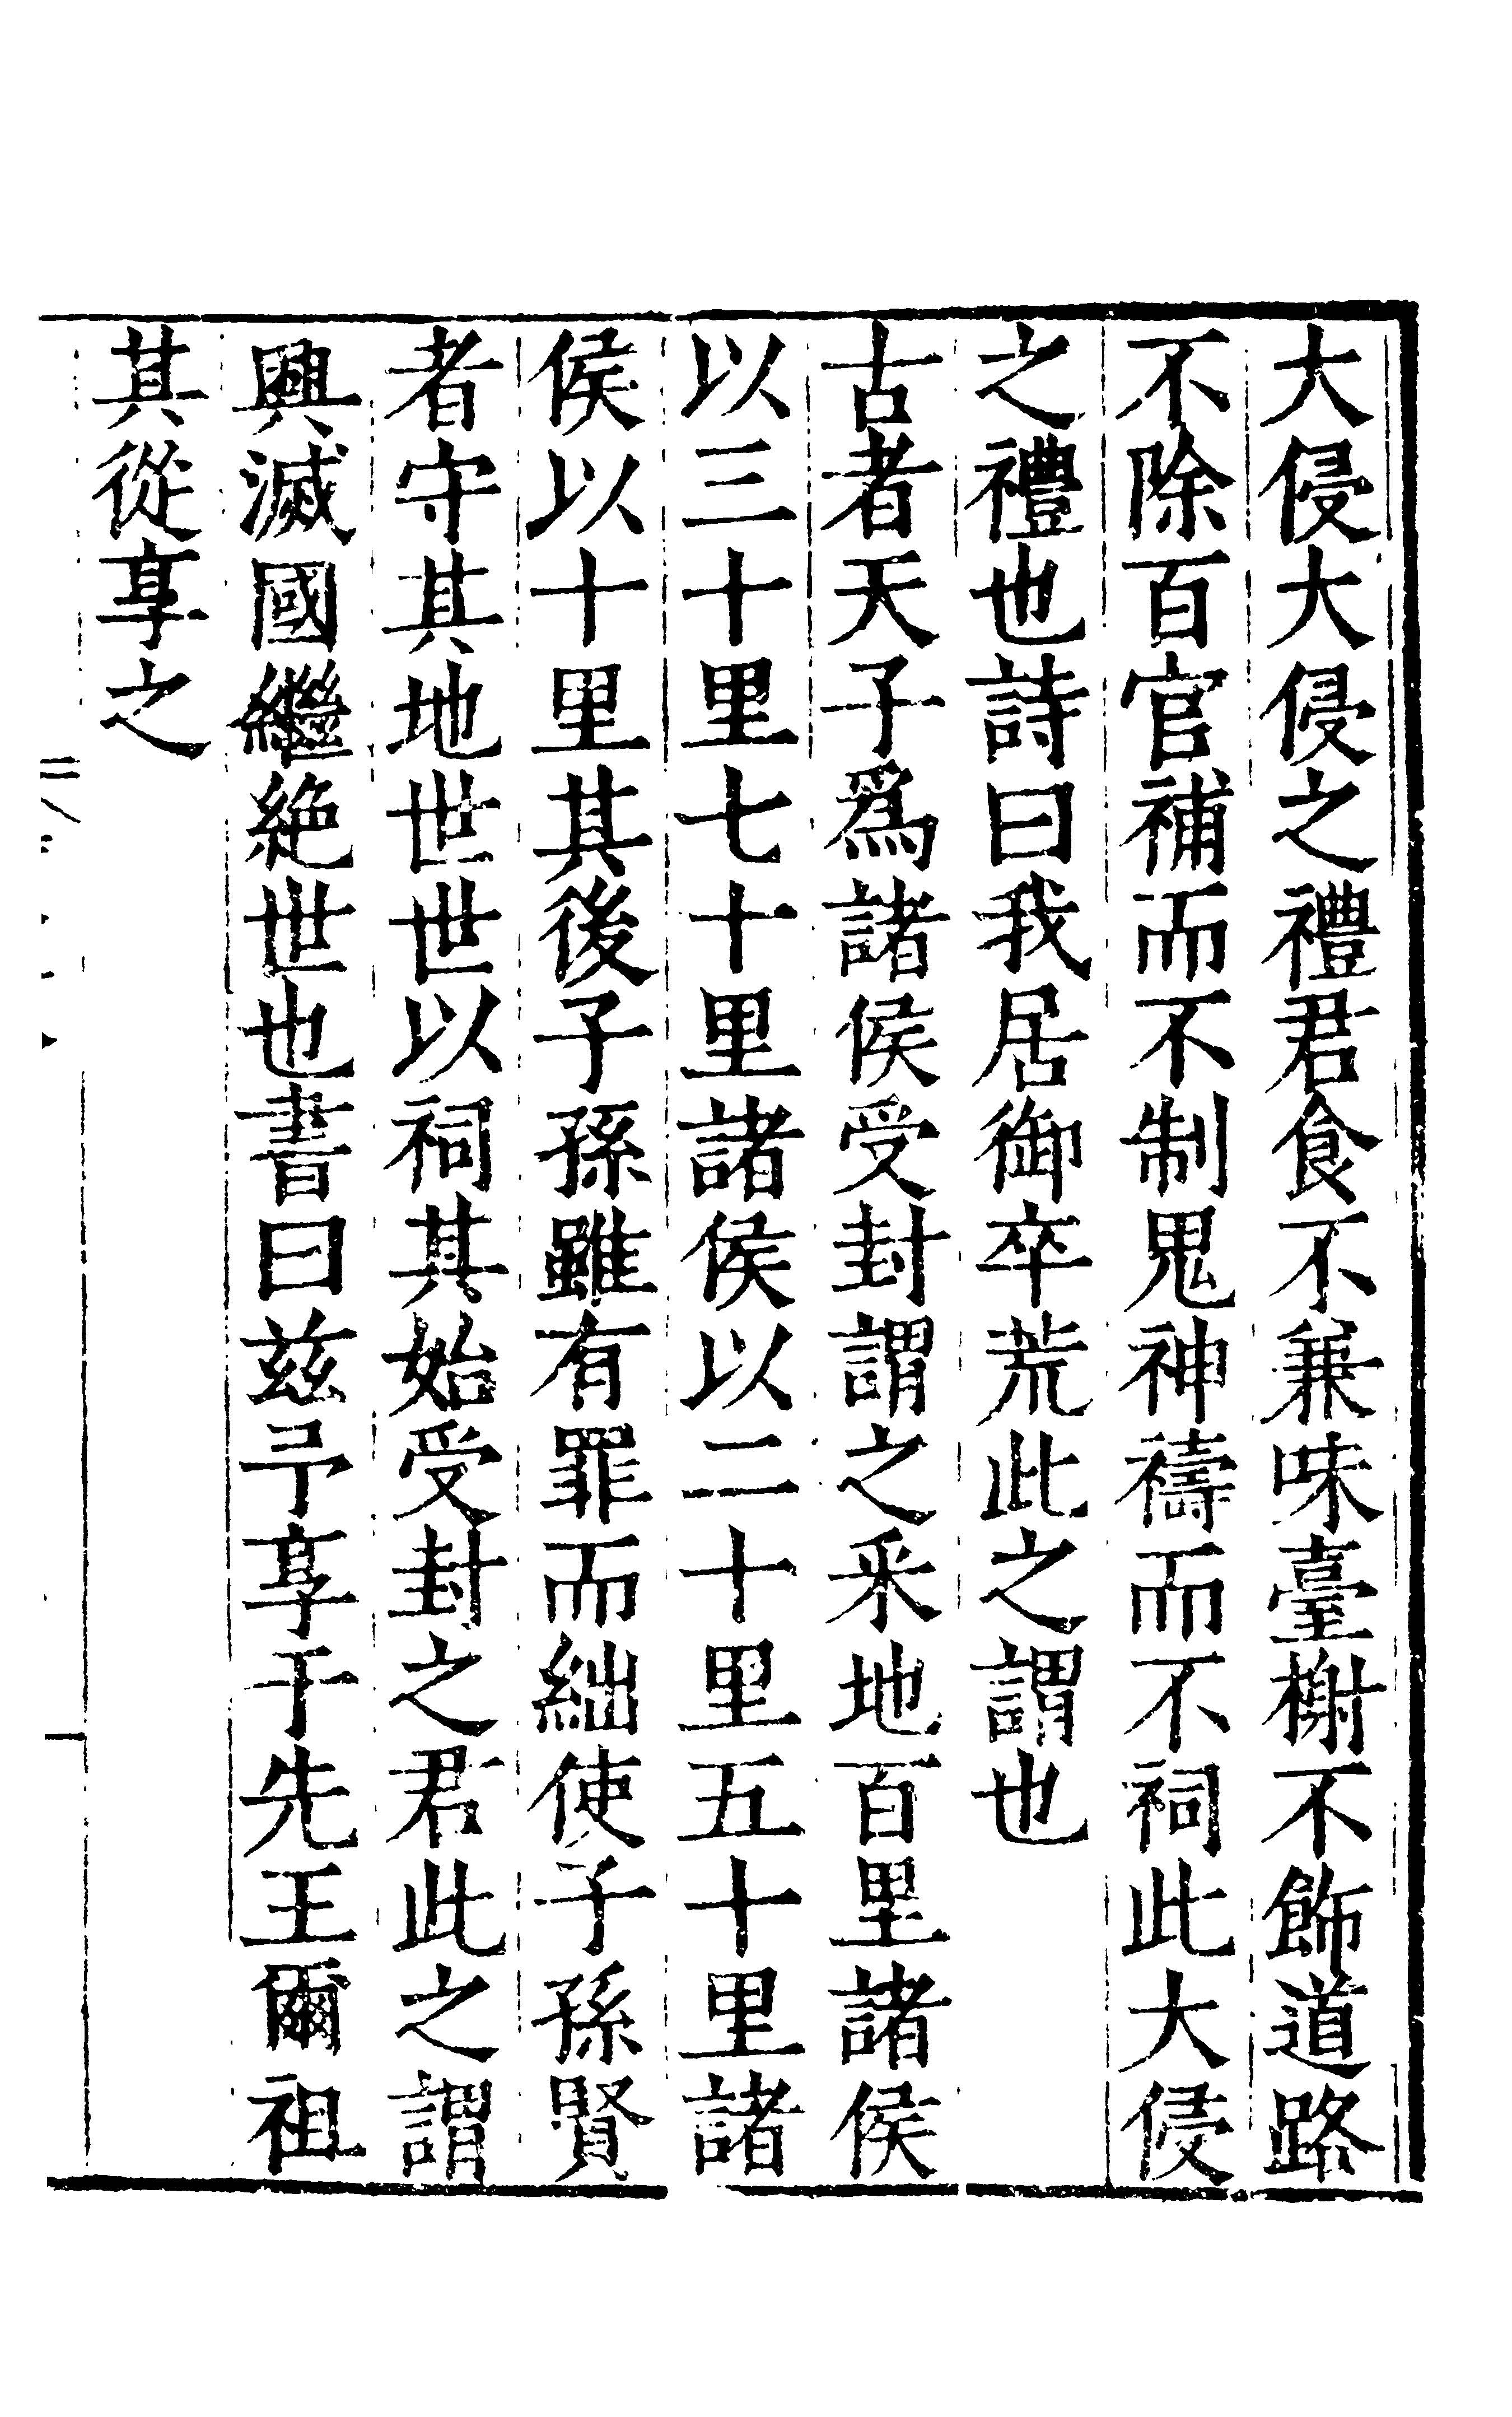 大侵大侵之禮君食不兼味臺榭不飾道路
不除百官補而不制鬼神禱而不祠此大侵
之禮也詩曰我居御卒荒此之謂也
古者天子爲諸侯受封謂之采地百里諸侯
以三十里七十里諸侯以二十里五十里諸
侯以十里其後子孫雖有罪而絀使子孫賢
者守其地世世以祠其始受封之君此之謂
興滅國繼絶世也書曰茲予享于先王爾祖
其從享之